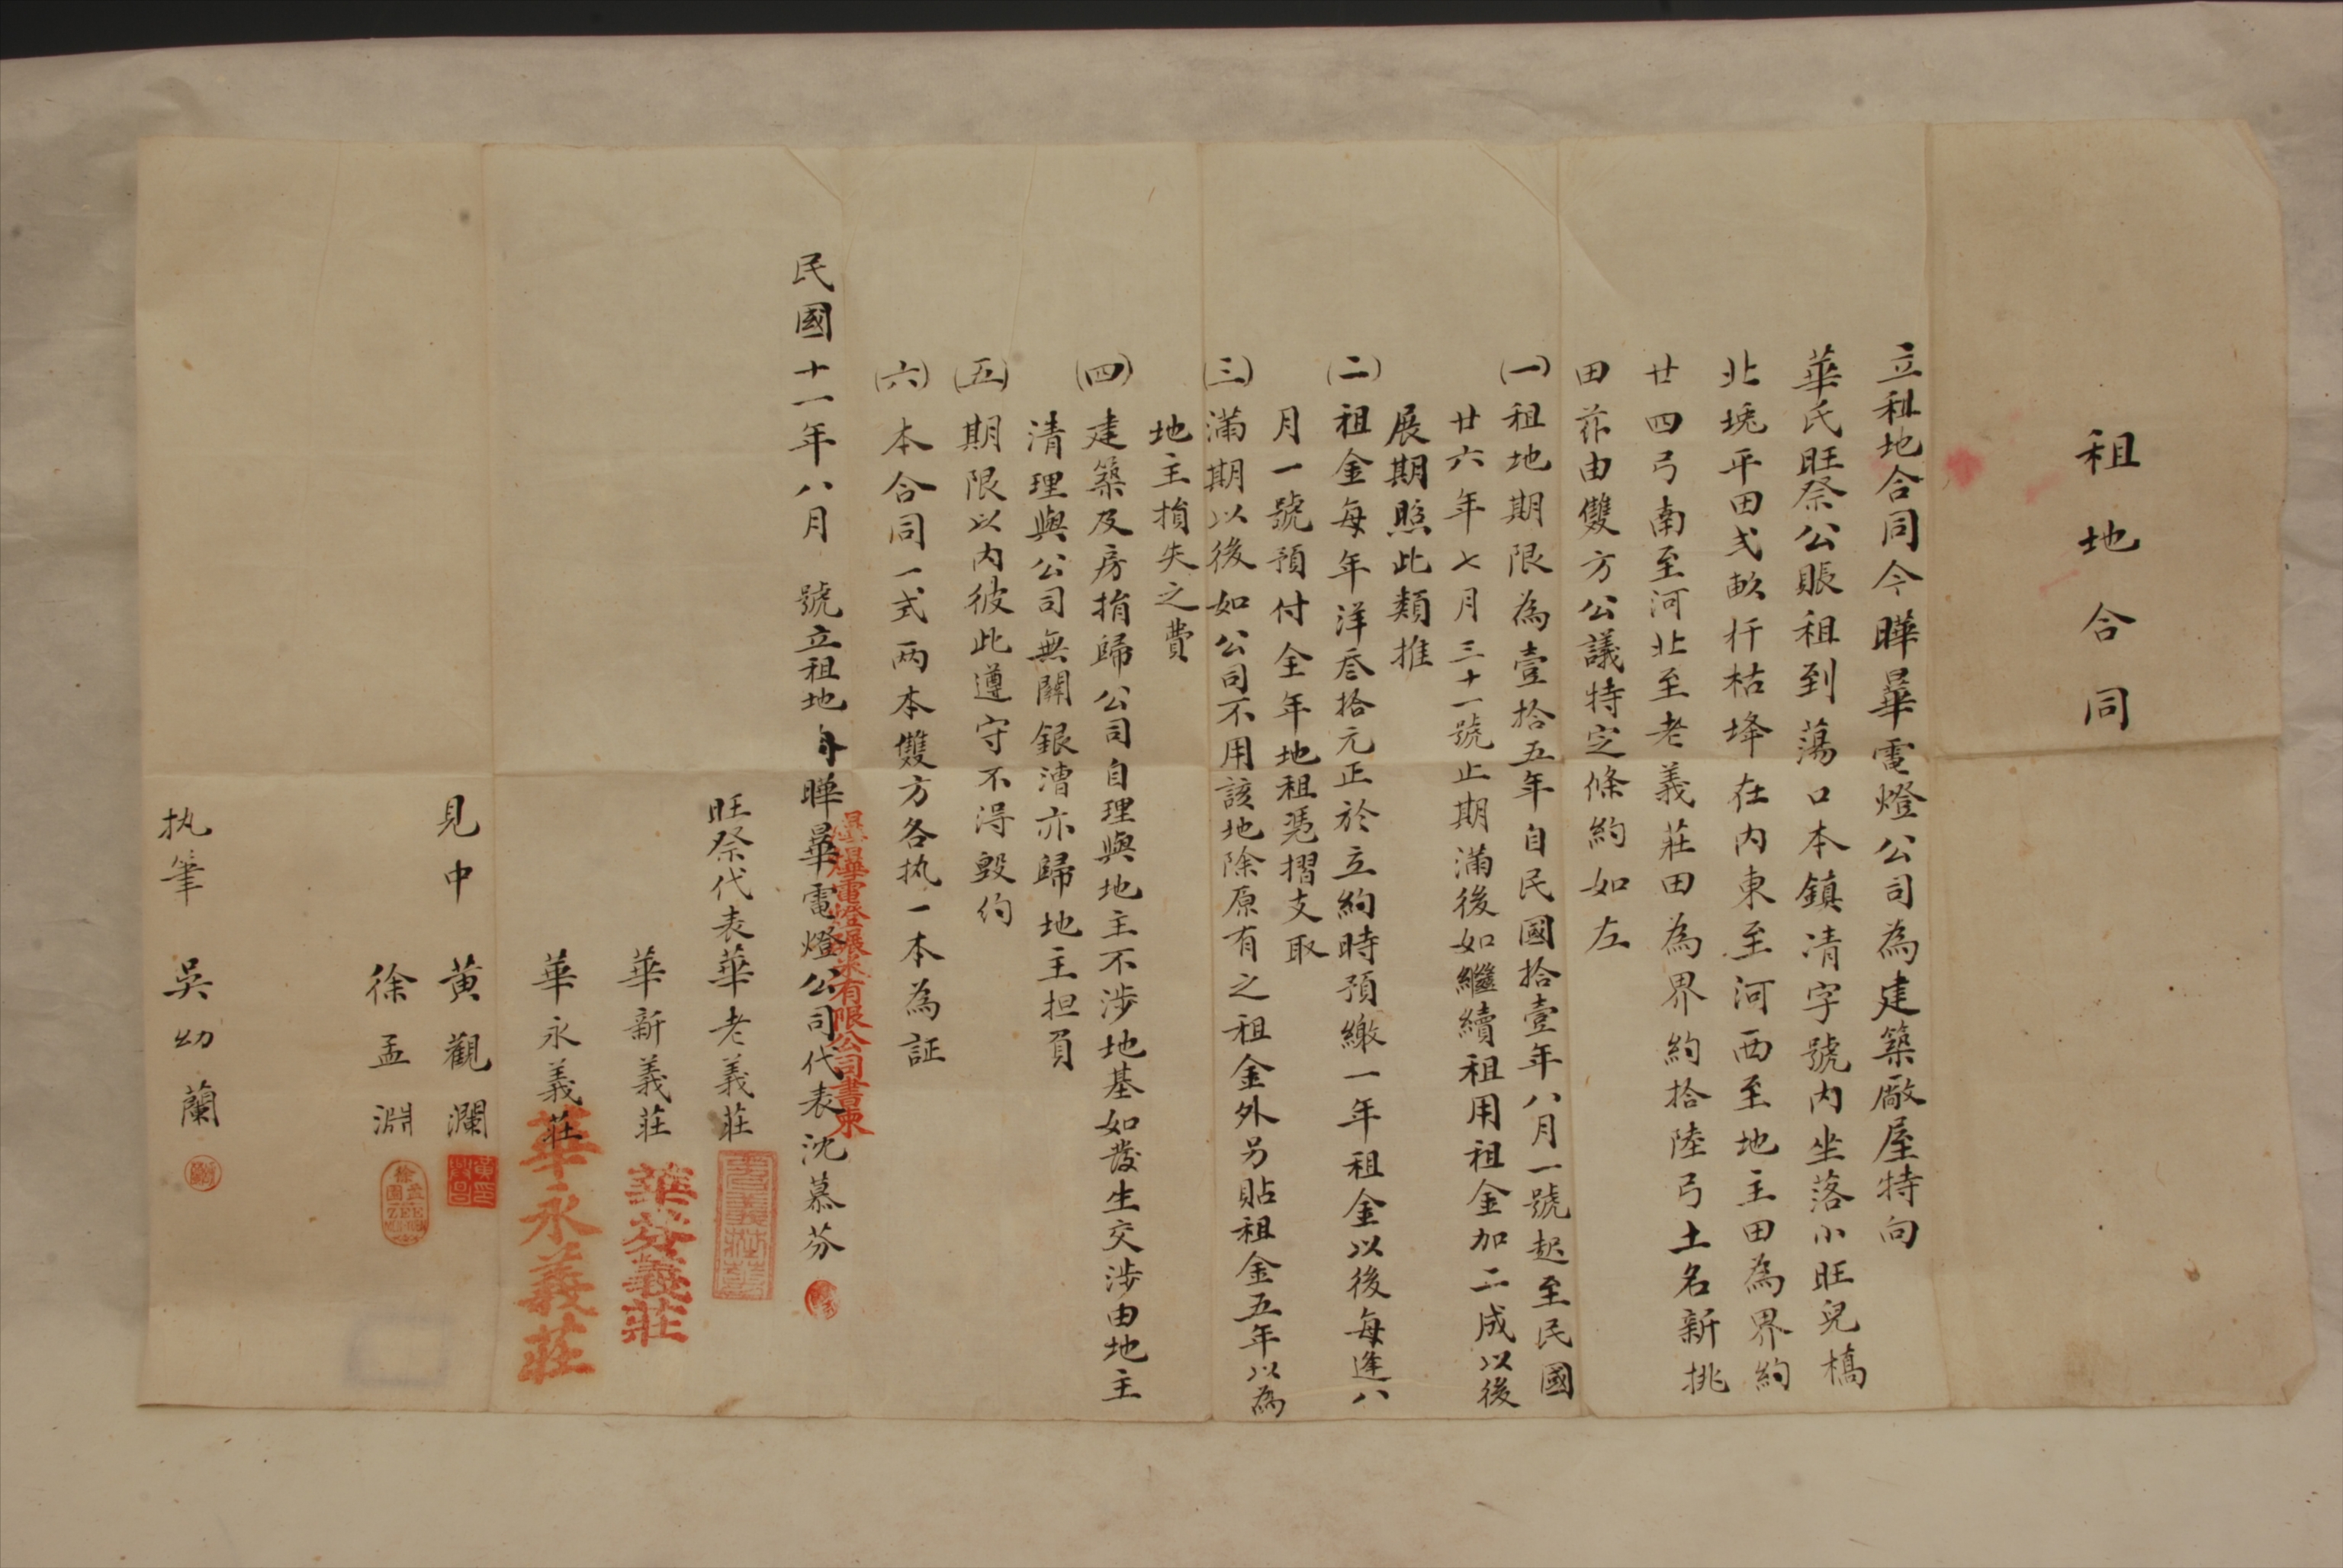 租地合同
立租地合同今曄暈電燈公司為建築廠屋特向
華氏旺祭公賬租到蕩口本鎮清字號內坐落小旺兒橋
北堍平田弍畝扦枯垾在內東至河西至地主田為界約
廿四弓南至河北至老義莊田為界約拾陸弓土名新挑
田茲由雙方公議特定條約如左
(一)租地期限為壹拾五年自民國拾壹年八月一號起至民國
廿六年七月三十一號止期滿後如繼續租用租金加二成以後
展期照此類推
(二)租金每年洋叁拾元正於立約時預繳一年租金以後每逢八
月一號預付全年地租憑摺支取
(三)滿期以後如公司不用該地除原有之租金外另貼租金五年以為
地主損失之費
(四)建築及房捐歸公司自理與地主不涉地基如發生交涉由地主
清理與公司無關銀漕亦歸地主担負
(五)期限以內彼此遵守不得毀約
(六)本合同一式两本雙方各执一本為証
民國十一年八月 號立租地 曄暈電燈公司代表沈慕芬
電燈碾米有限公司書柬
旺祭代表華老義莊
華新義莊
華芬義莊
華永義莊
華永義莊
見中 黄觀瀾
徐孟淵
徐孟淵
ZEE
执筆 吳幼蘭